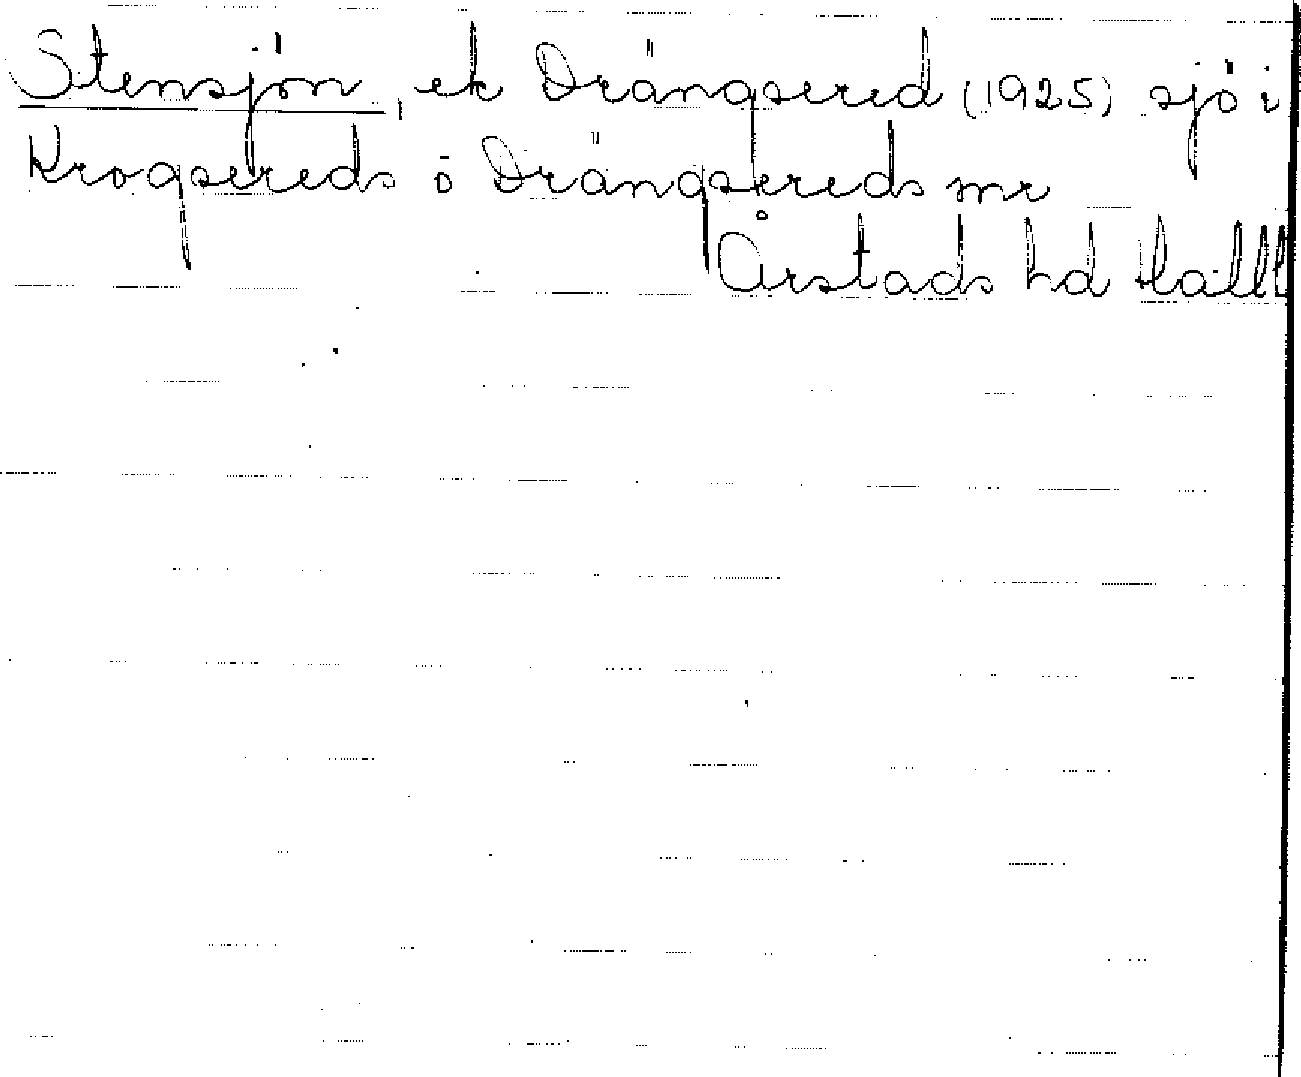 Stensjön, ek Drängsered (1925) sjö i
Krogsereds o Drängsereds mr
Årstads hd Hall